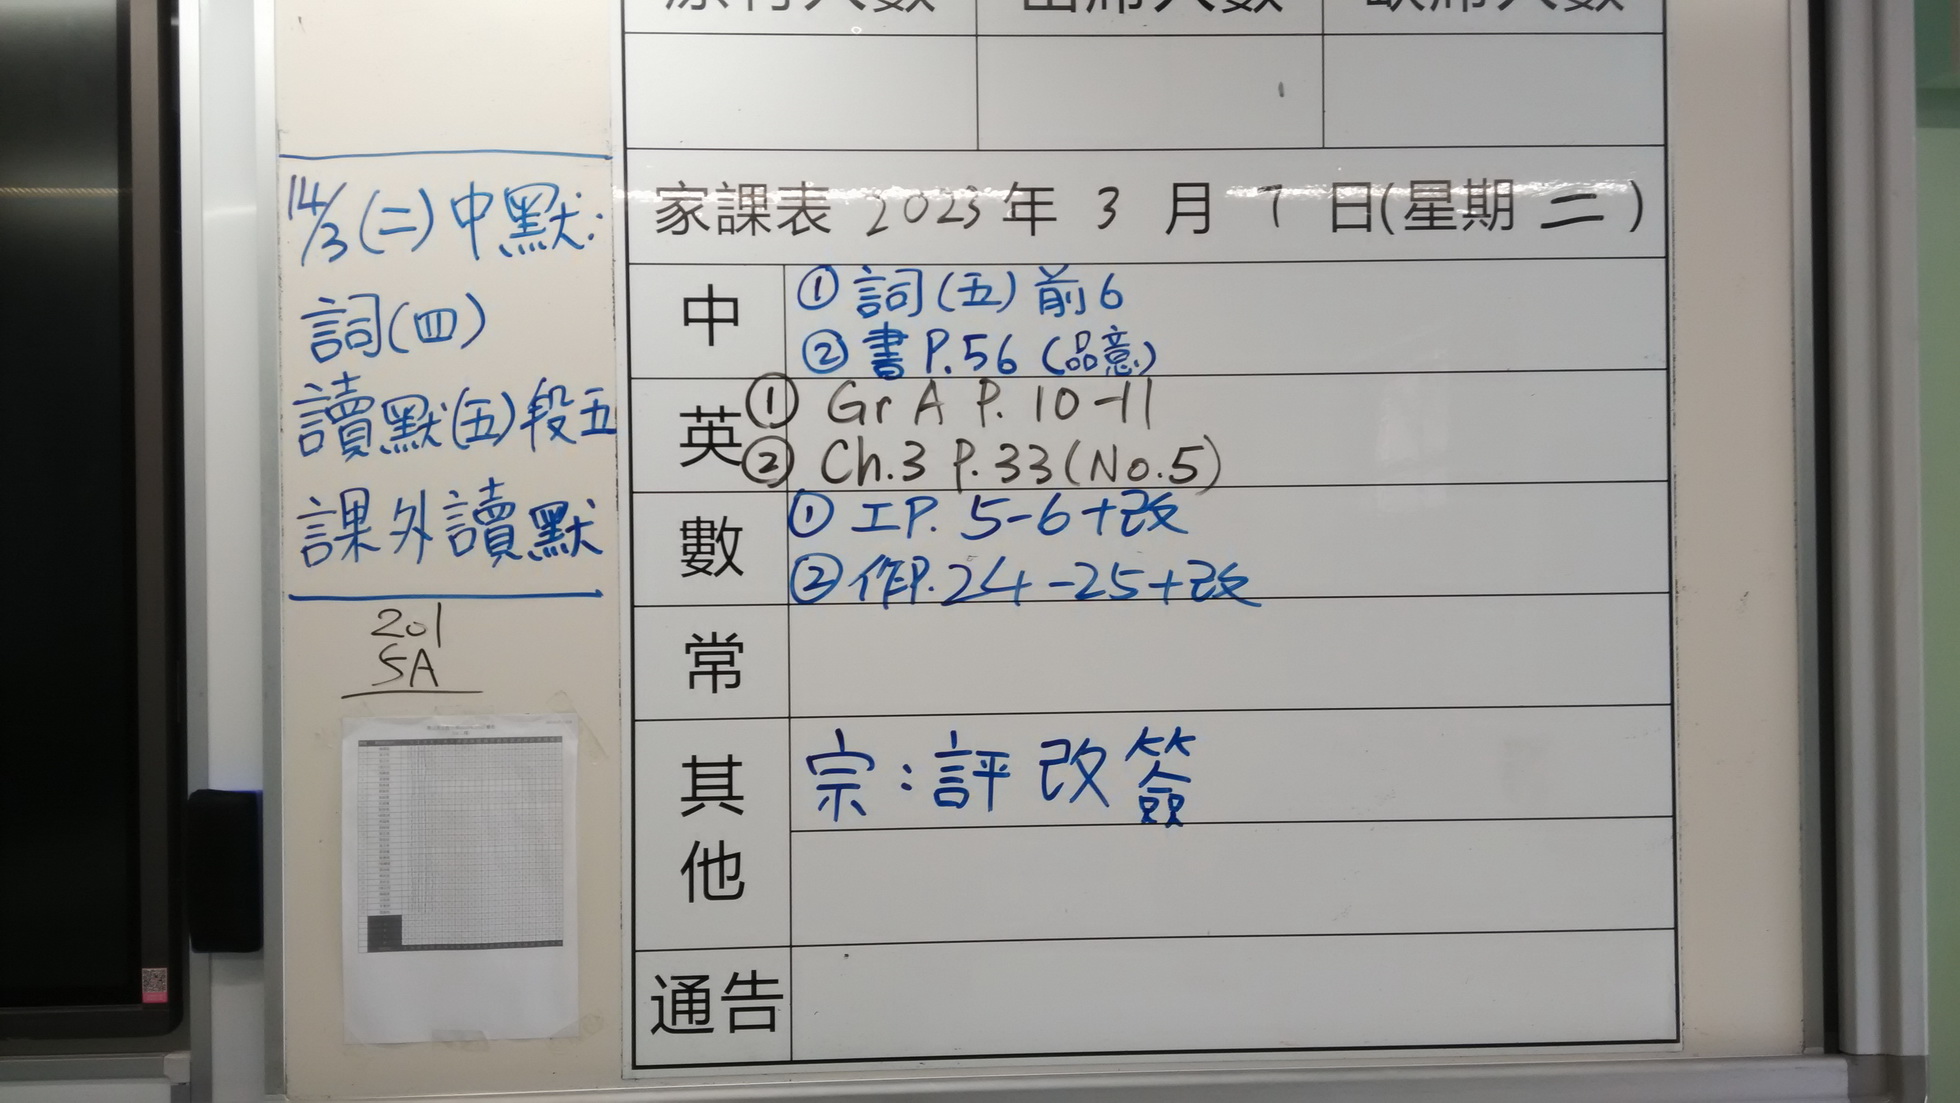 原有人數 出席人數 缺席人數
家課表 2023年 3 月 7 日(星期 二)
中
① 詞(五)前6
② 書 P.56 (品意)
英
① Gr A P. 10-11
② Ch.3 P.33 (No.5)
數
① 工P. 5-6+改
② 作P. 24-25+改
常
其他
宗:評改簽
通告
14/3(二)中默:
詞(四)
讀默(五)段五
課外讀默
201
5A